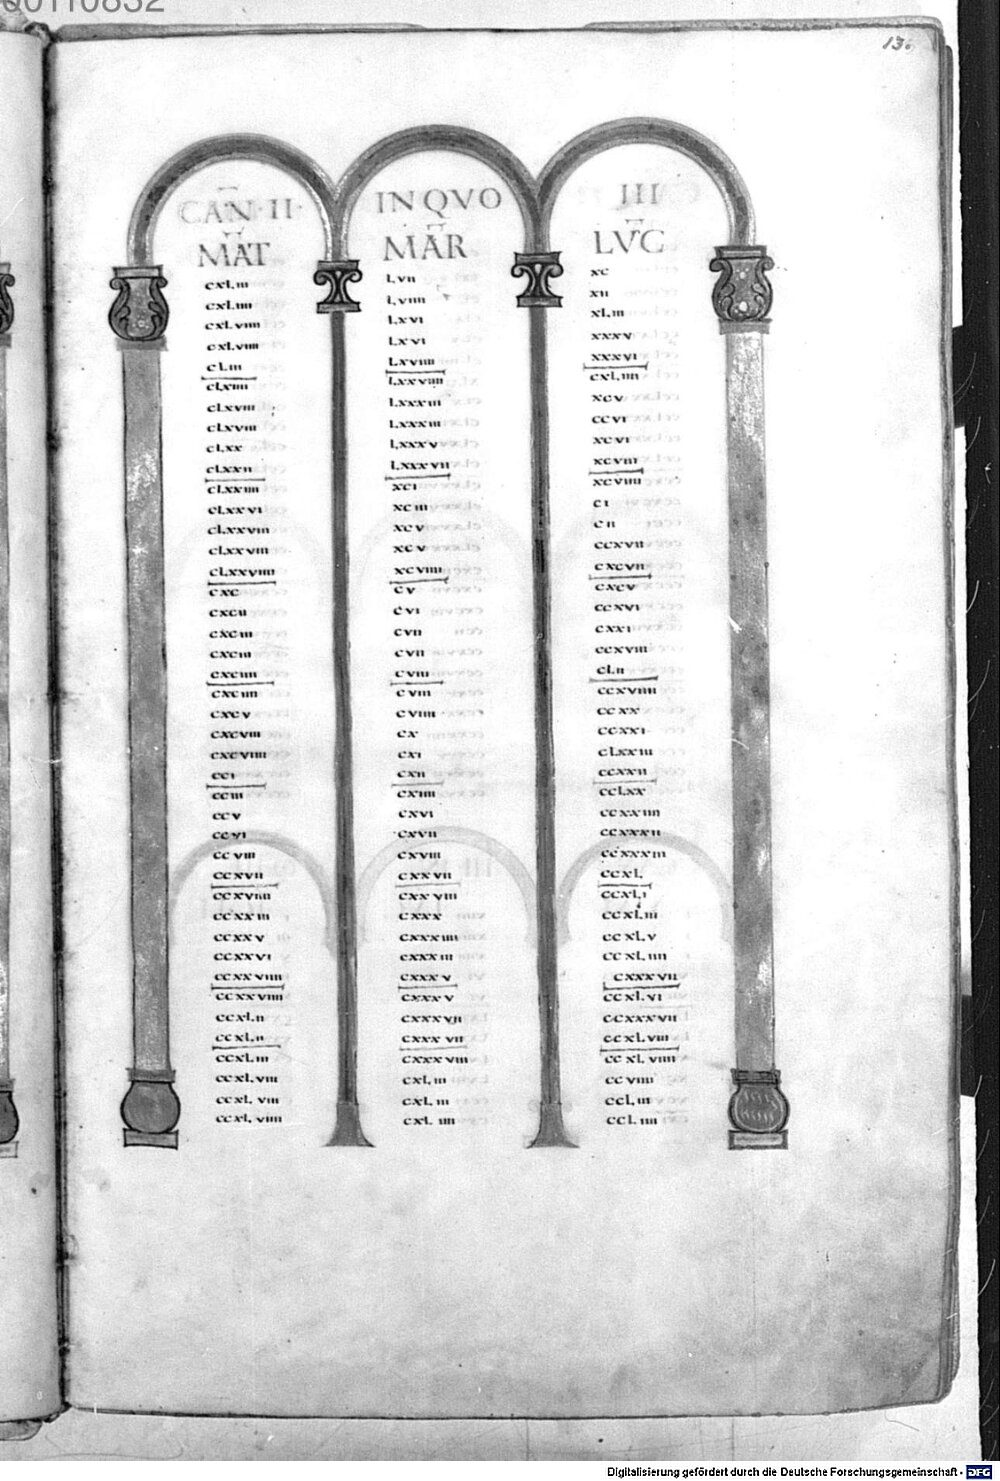 00110832
136
CAN · II · IN QVO III
MAT MAR LVC
cxliii lvii xc
cxliiii lviiii xii
cxlviiii lxvi xliii
cxlviiii lxvi xxxxv
cliii lxviiii xxxxvi
clxiiii lxxviiii cxliiii
clxviii lxxxiii xcv
clxviii lxxxiii ccvi
clxx lxxxv xcvi
clxxii lxxxvii xcviii
clxxiiii xci xcviiii
clxxvi xciii ci
clxxviii xcv cii
clxxviii xcv ccxvii
clxxviiii xcviiii cxcvii
cxc cv cxcv
cxcii cvi ccxvi
cxciii cvii cxxi
cxciii cvii ccxviii
cxciiii cviii clii
cxciiii cviii ccxviiii
cxcv cviiii ccxx
cxcviii cx ccxxi
cxcviiii cxi clxxiii
cci cxii ccxxii
cciii cxiiii cclxx
ccv cxvi ccxxiiii
ccvi cxvii ccxxxii
ccviii cxviii ccxxxiii
ccxvii cxxvii ccxl
ccxviiii cxxviii ccxli
ccxxiii cxxx ccxliii
ccxxv cxxxiiii ccxlv
ccxxvi cxxxiii ccxliiii
ccxxviiii cxxxv cxxxvii
ccxxviiii cxxxv ccxlvi
ccxlii cxxxvii ccxxxvii
ccxlii cxxxvii ccxlviii
ccxliii cxxxviii ccxlviiii
ccxlviii cxliii ccviiii
ccxlviii cxliii ccliii
ccxlviiii cxliiii ccliiii
Digitalisierung gefördert durch die Deutsche Forschungsgemeinschaft - DFG